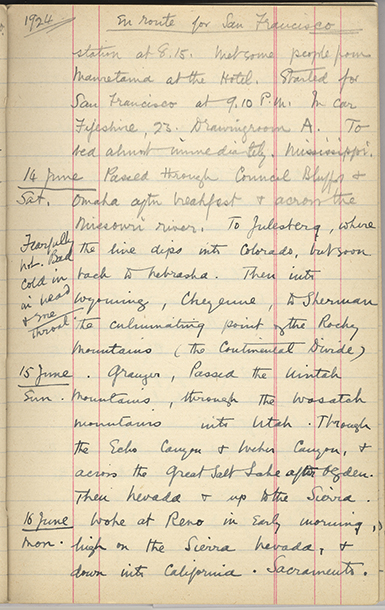 1924 En route for San Francisco
station at 8.15. Met some people from
Mauretania at the Hotel. Started for
San Francisco at 9.10 P.M. In car
Fifeshire, 23. Drawingroom A. To
bed almost immediately. Mississippi.
14 June Passed through Council Bluffs &
Sat. Omaha after breakfast & across the
Missouri river. To Julesberg, where
Fearfully the line dips into Colorado, but soon
hot. Bad back to Nebraska. Then into
cold in Wyoming, Cheyenne, to Sherman
head the culminating point of the Rocky
& throat Mountains (the Continental Divide)
15 June. Granger, Passed the Uintah
Sun. Mountains, through the Wasatch
mountains into Utah. Through
the Echo Canyon & Weber Canyon, &
across the Great Salt Lake after Ogden.
Then Nevada & up to the Sierra.
16 June Woke at Reno in Early morning,
Mon. high on the Sierra Nevada, &
down into California. Sacramento.